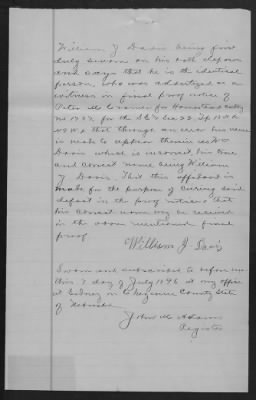 William J Davis being first
duly sworn on his oath deposes
and says that he is the identical
person, who was advertized as a
witness in final proof notice of
Peter M Cramer for Homestead Entry
No 1737. for the SE¼ Sec 22. Tp 15 N R
49 W & that through an error his name
is made to appear therein as Wm
Davis which is incorrect, his true
and correct name being William
J. Davis. That this affidavit is
made for the purpose of curing said
defect in the proof notice & that
his correct name may be received
in the above mentioned final
proof
William J Davis
Sworn and subscribed to before me
this 7 day of July 1896 at my office
at Sidney in Cheyenne County State
of Nebraska
John M Adams
Register